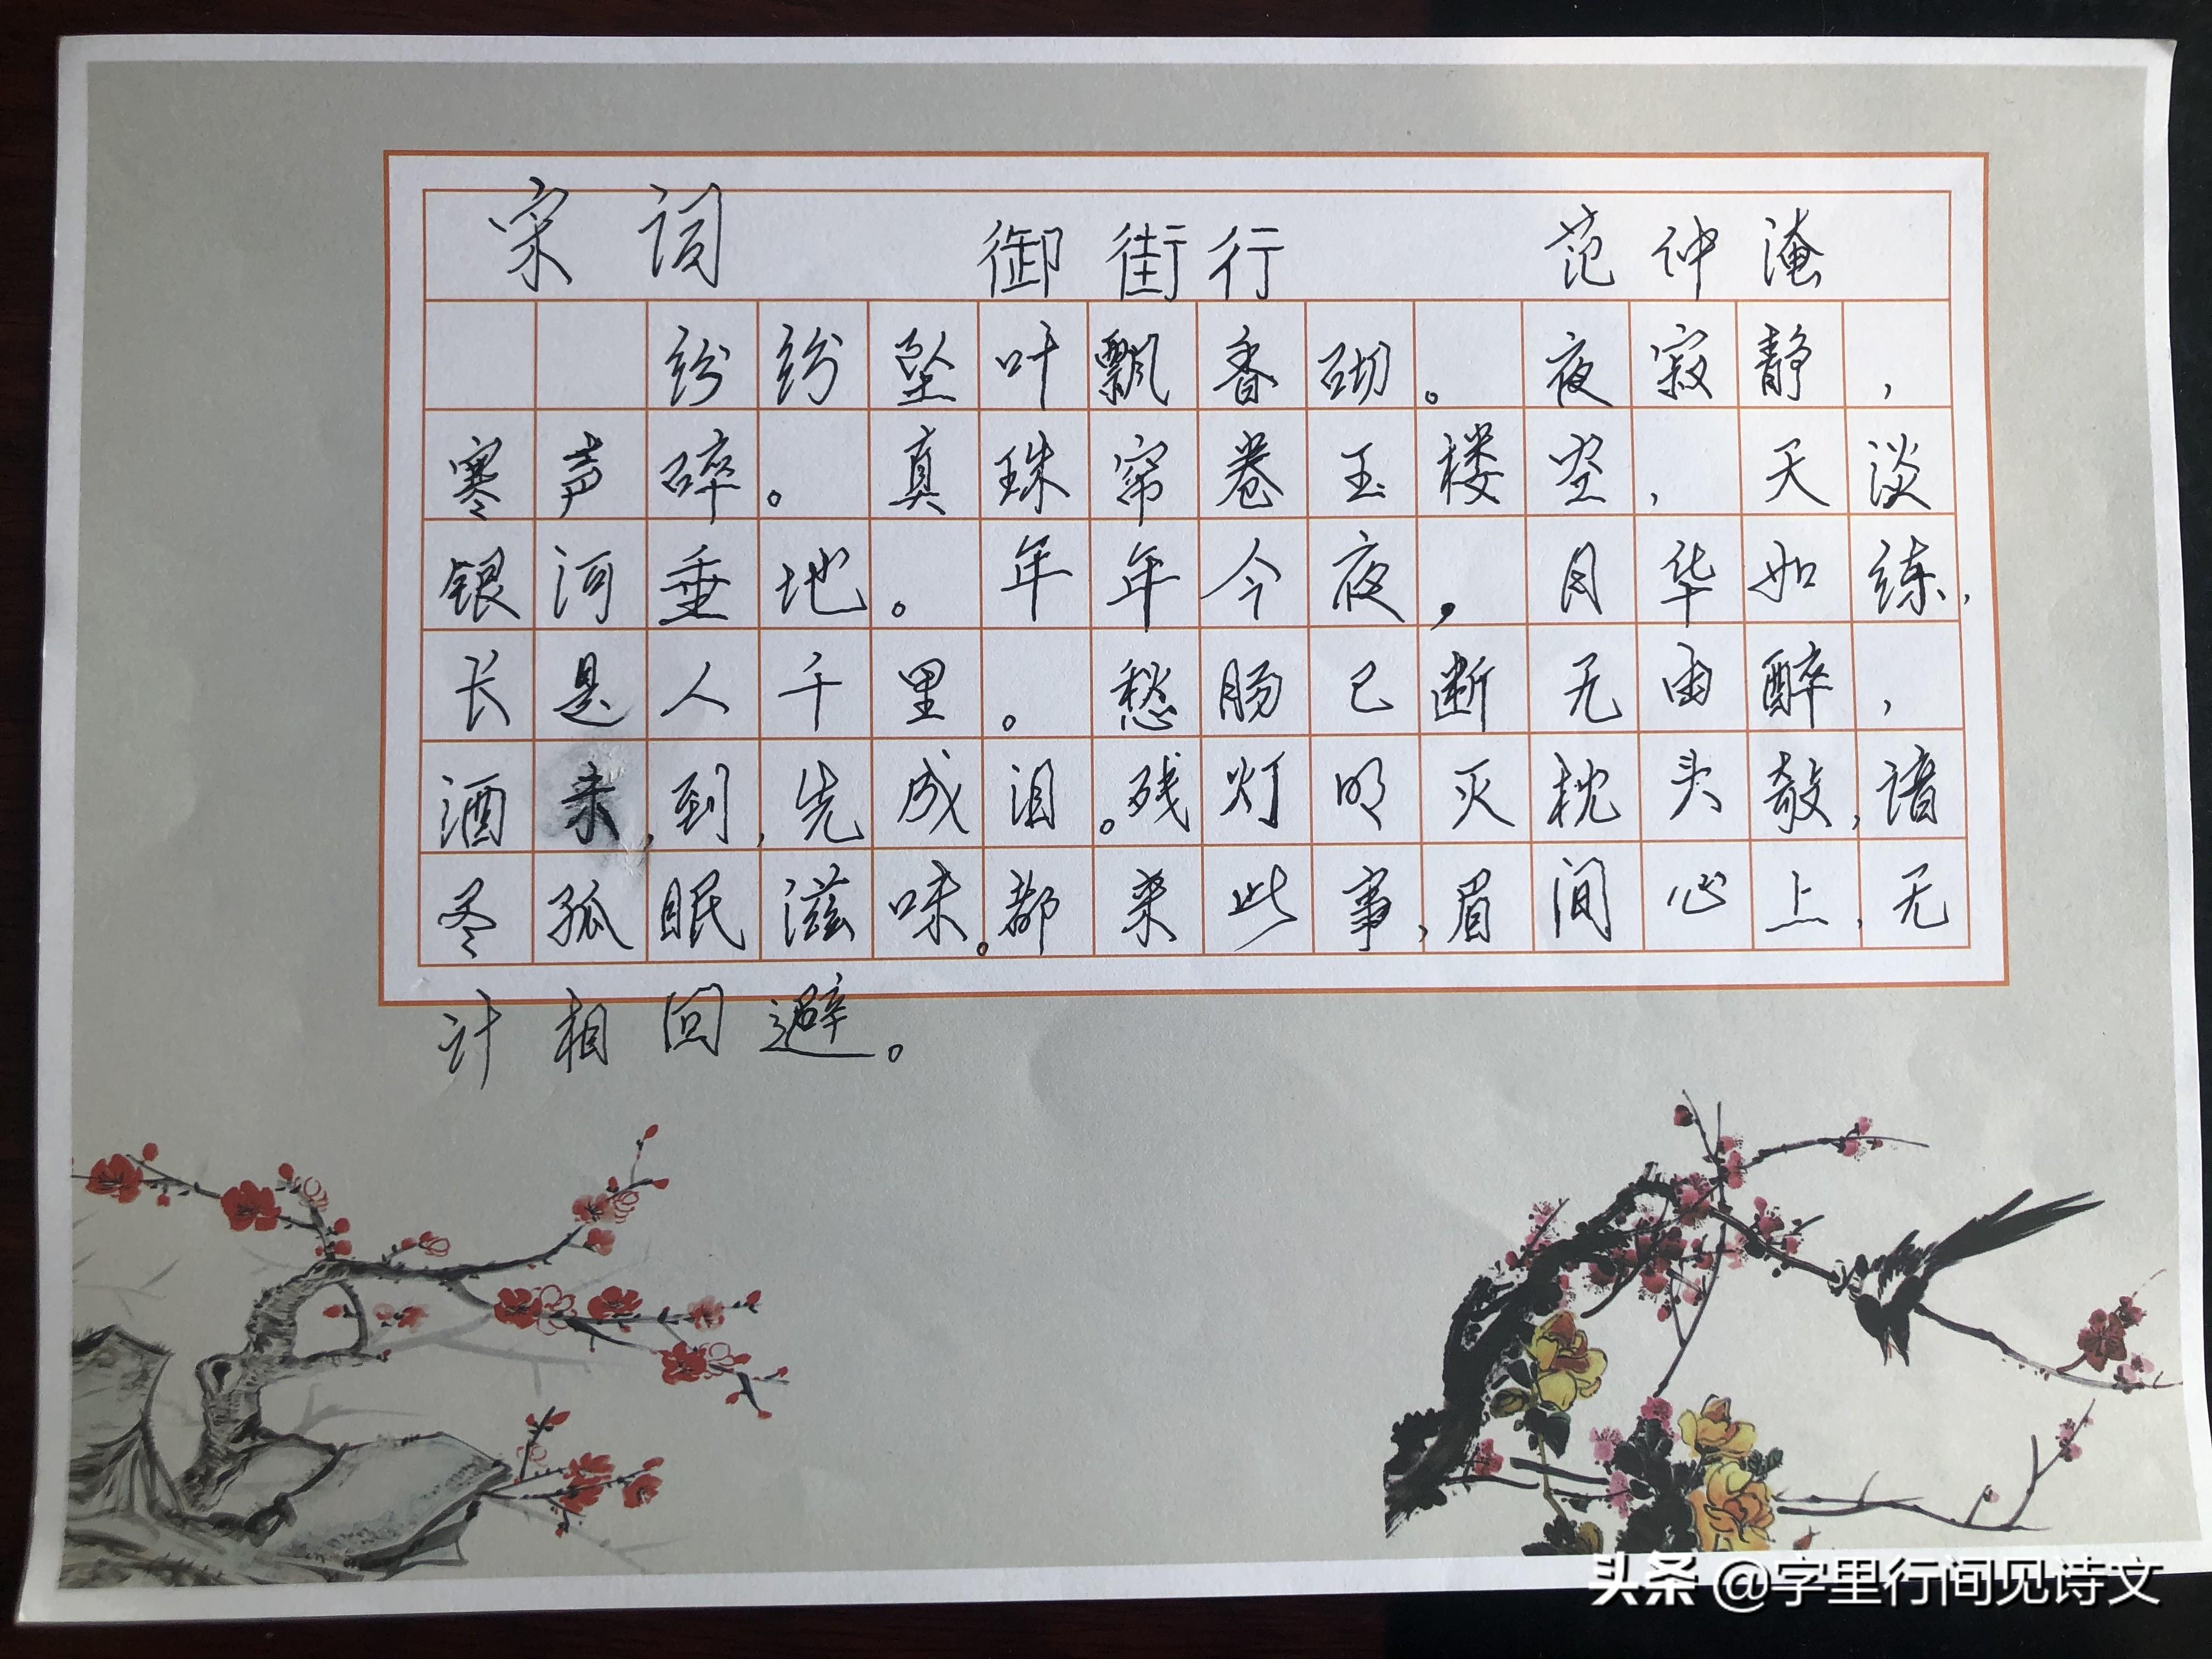 宋词 御街行 范仲淹
纷纷坠叶飘香砌。夜寂静，
寒声碎。真珠帘卷玉楼空，天淡
银河垂地。年年今夜，月华如练，
长是人千里。愁肠已断无由醉，
酒未，到，先成泪。残灯明灭枕头敧，谙
尽孤眠滋味。都来此事，眉间心上，无
计相回避。
头条 @字里行间见诗文